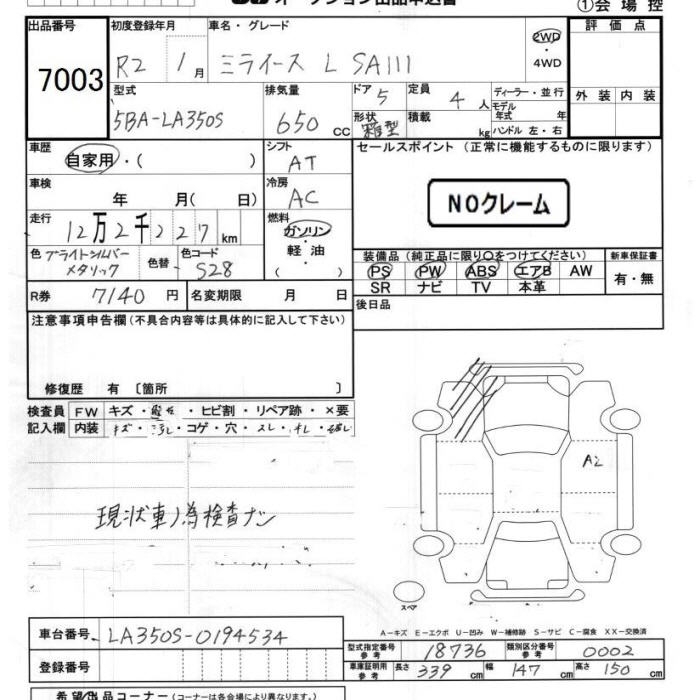 オークション出品申込書 ①会場控
出品番号 初度登録年月 車名・グレード 評価点
7003 R2 1月 ミライース L SAIII 2WD ・ 4WD
型式 排気量 ドア 5 定員 4人 ディーラー・並行 外装 内装
5BA-LA350S 650 CC 形状 箱型 積載 kg モデル年式 年 ハンドル 左・右
車歴 シフト セールスポイント(正常に機能するものに限ります)
自家用・( ) AT
車検 冷房
年 月( 日) AC NOクレーム
走行 燃料
12万2千227km ガソリン・軽油・( )
色 ブライトシルバーメタリック 色替 色コード S28
装備品(純正品に限り○をつけてください) 新車保証書
PS PW ABS エアB AW 有・無
SR ナビ TV 本革
R券 7140円 名変期限 月 日 後日品
注意事項申告欄(不具合内容等は具体的に記入して下さい)
修復歴 有〔箇所 〕
検査員 FW キズ・ ・ヒビ割・リペア跡・×要
記入欄 内装 キズ・汚れ・コゲ・穴・スレ・
現状車ノ為検査ナシ
A2
スペア
A-キズ E-エクボ U-凹み W-補修跡 S-サビ C-腐食 XX-交換済
車台番号 LA350S-0194534
型式指定番号 参考 18736 類別区分番号 参考 0002
登録番号
車庫証明用 参考 長さ 339cm 幅 147cm 高さ 150cm
希望出品コーナー(コーナーは各会場により異なります。)